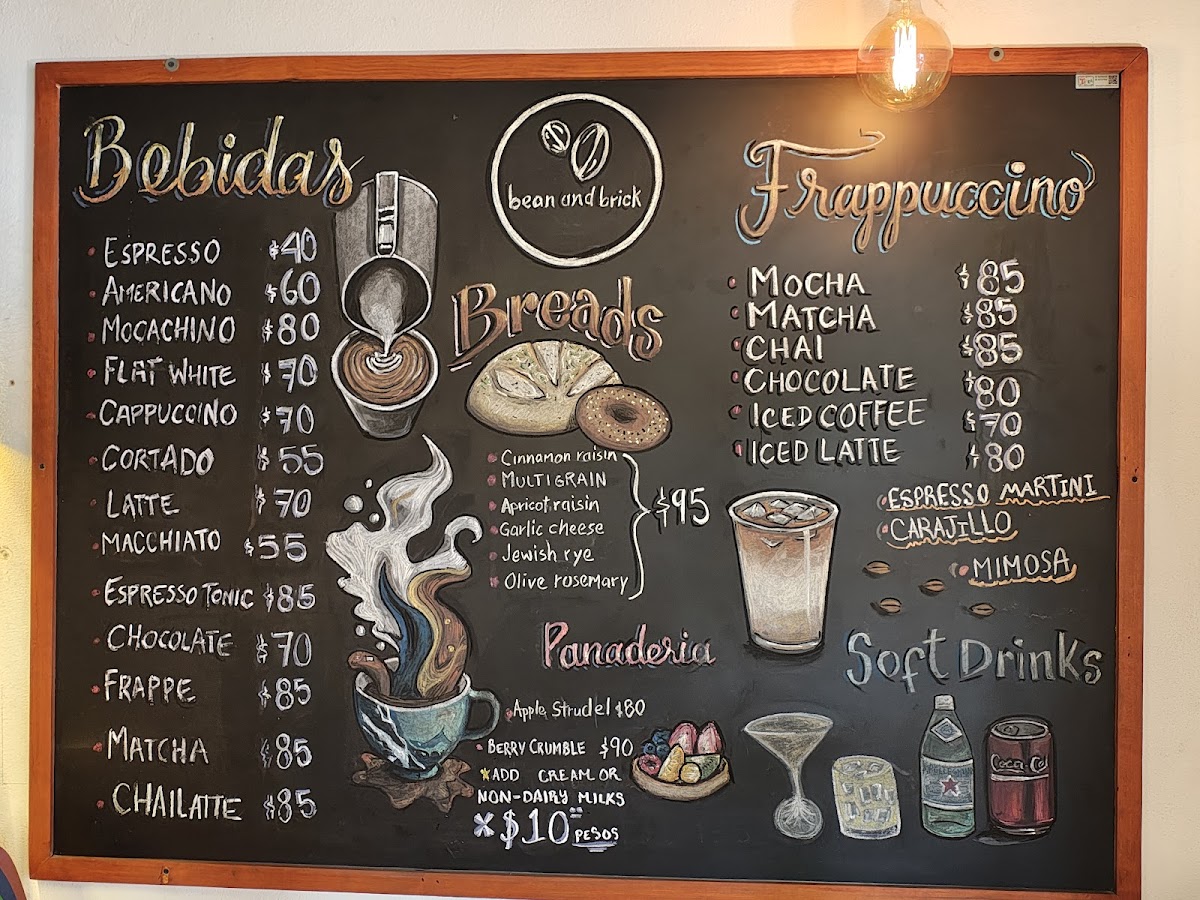 Bebidas
ESPRESSO $40
AMERICANO $60
MOCACHINO $80
FLAT WHITE $70
CAPPUCCINO $70
CORTADO $55
LATTE $70
MACCHIATO $55
ESPRESSO TONIC $85
CHOCOLATE $70
FRAPPE $85
MATCHA $85
CHAI LATTE $85
bean and brick
Breads
Cinnamon raisin
MULTIGRAIN
Apricot raisin
Garlic cheese
Jewish rye
Olive rosemary
$95
Panaderia
Apple Strudel $80
BERRY CRUMBLE $90
ADD CREAM OR
NON-DAIRY MILKS
X $10 PESOS
Frappuccino
MOCHA $85
MATCHA $85
CHAI $85
CHOCOLATE $80
ICED COFFEE $70
ICED LATTE $80
ESPRESSO MARTINI
CARAJILLO
MIMOSA
Soft Drinks
Coca-Col